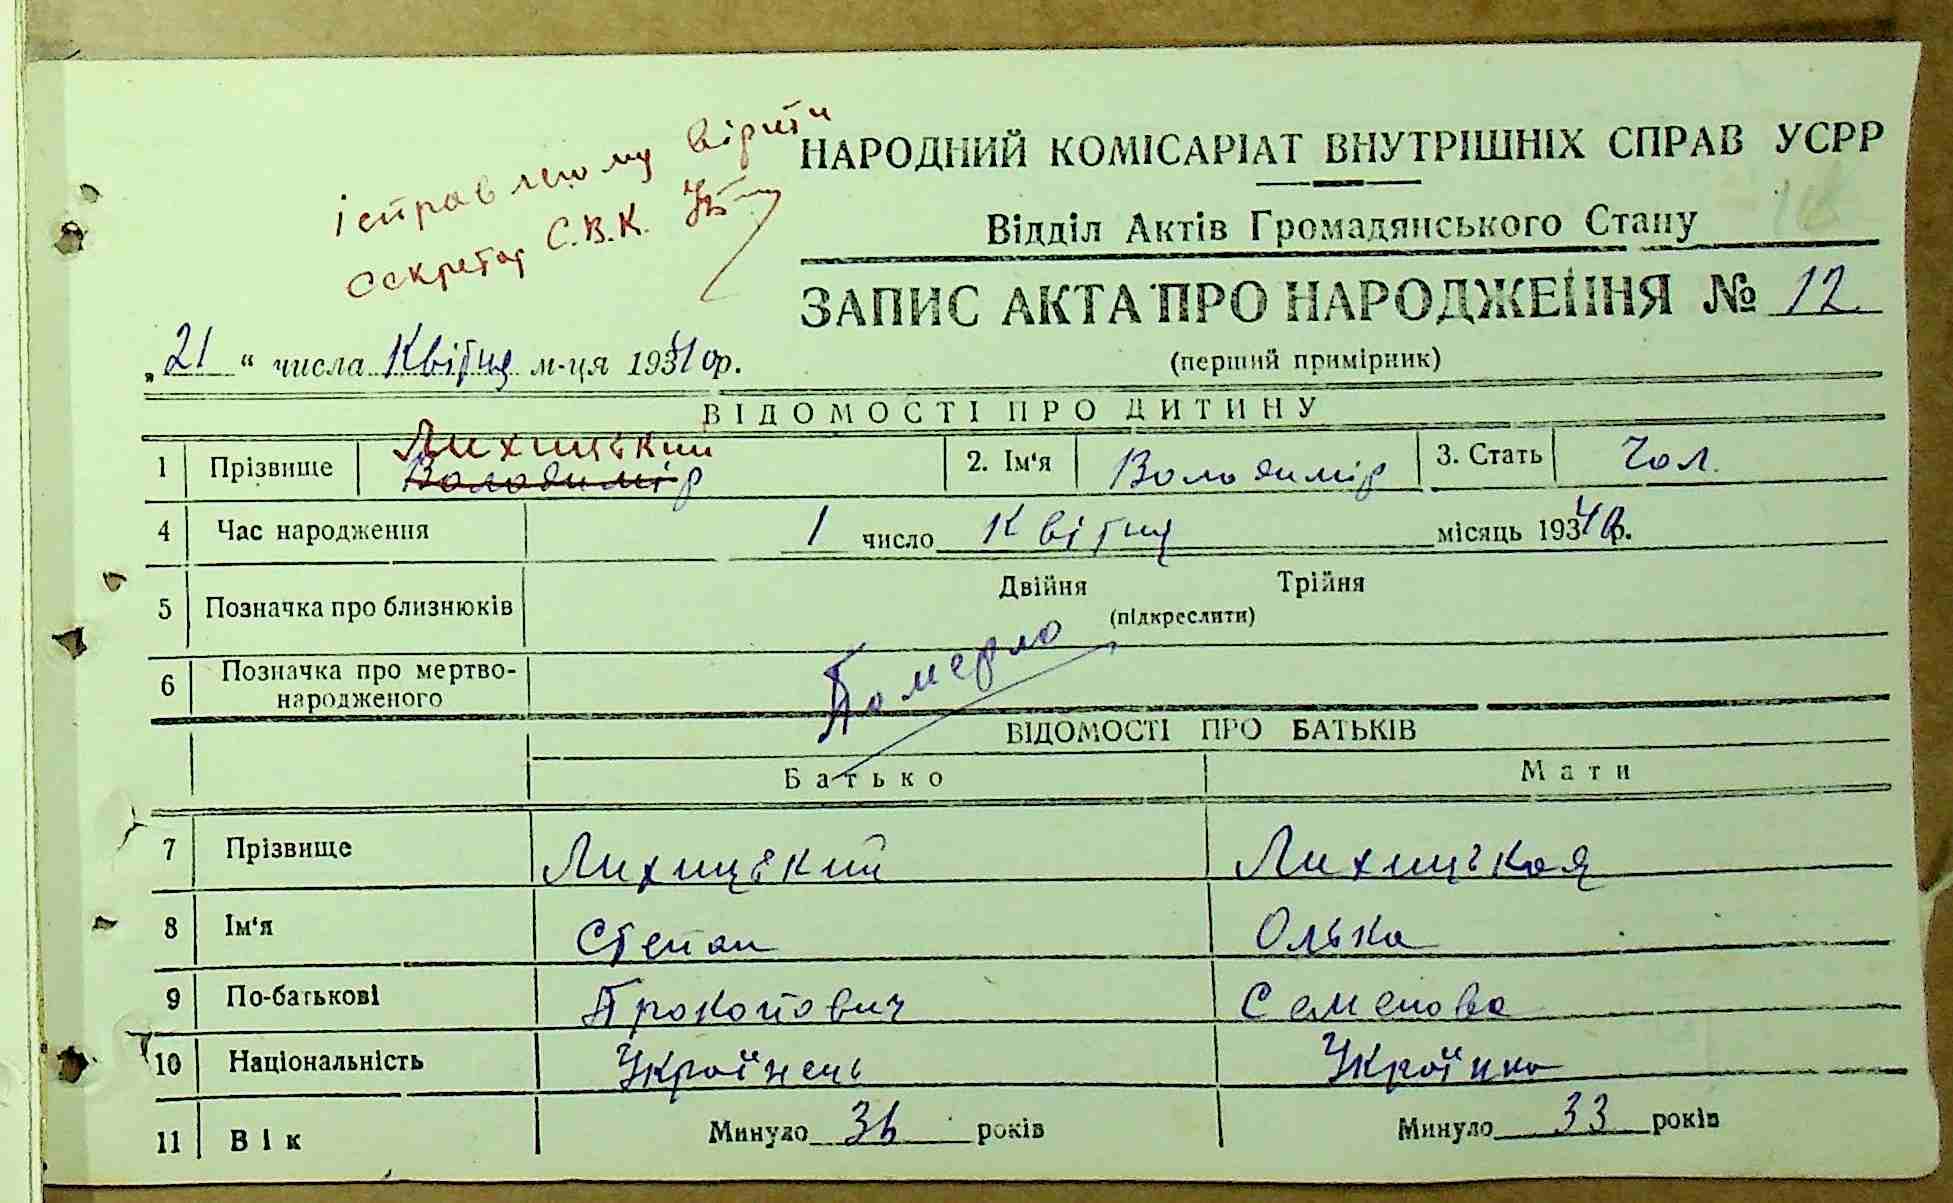 ісправленому вірити
секретар С.В.К.
НАРОДНИЙ КОМІСАРІАТ ВНУТРІШНІХ СПРАВ УСРР
Відділ Актів Громадянського Стану
ЗАПИС АКТА ПРО НАРОДЖЕННЯ № 12
„21“ числа Квітця м-ця 1940р.
(перший примірник)
ВІДОМОСТІ ПРО ДИТИНУ
1 Прізвище Лихицький Володимір 2. Ім'я Володимір 3. Стать Чол.
4 Час народження 1 число Квітця місяць 1940р.
5 Позначка про близнюків Двійня Трійня
(підкреслити)
6 Позначка про мертво-
народженого
Померло
ВІДОМОСТІ ПРО БАТЬКІВ
Батько Мати
7 Прізвище Лихицький Лихицькая
8 Ім'я Степан Олька
9 По-батькові Прокопович Семенова
10 Національність Українець Українка
11 Вік Минуло 36 років Минуло 33 років